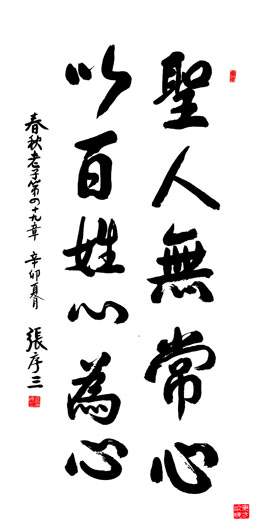 聖人無常心
以百姓心為心
春秋老子第四十九章 辛卯夏月 張序三